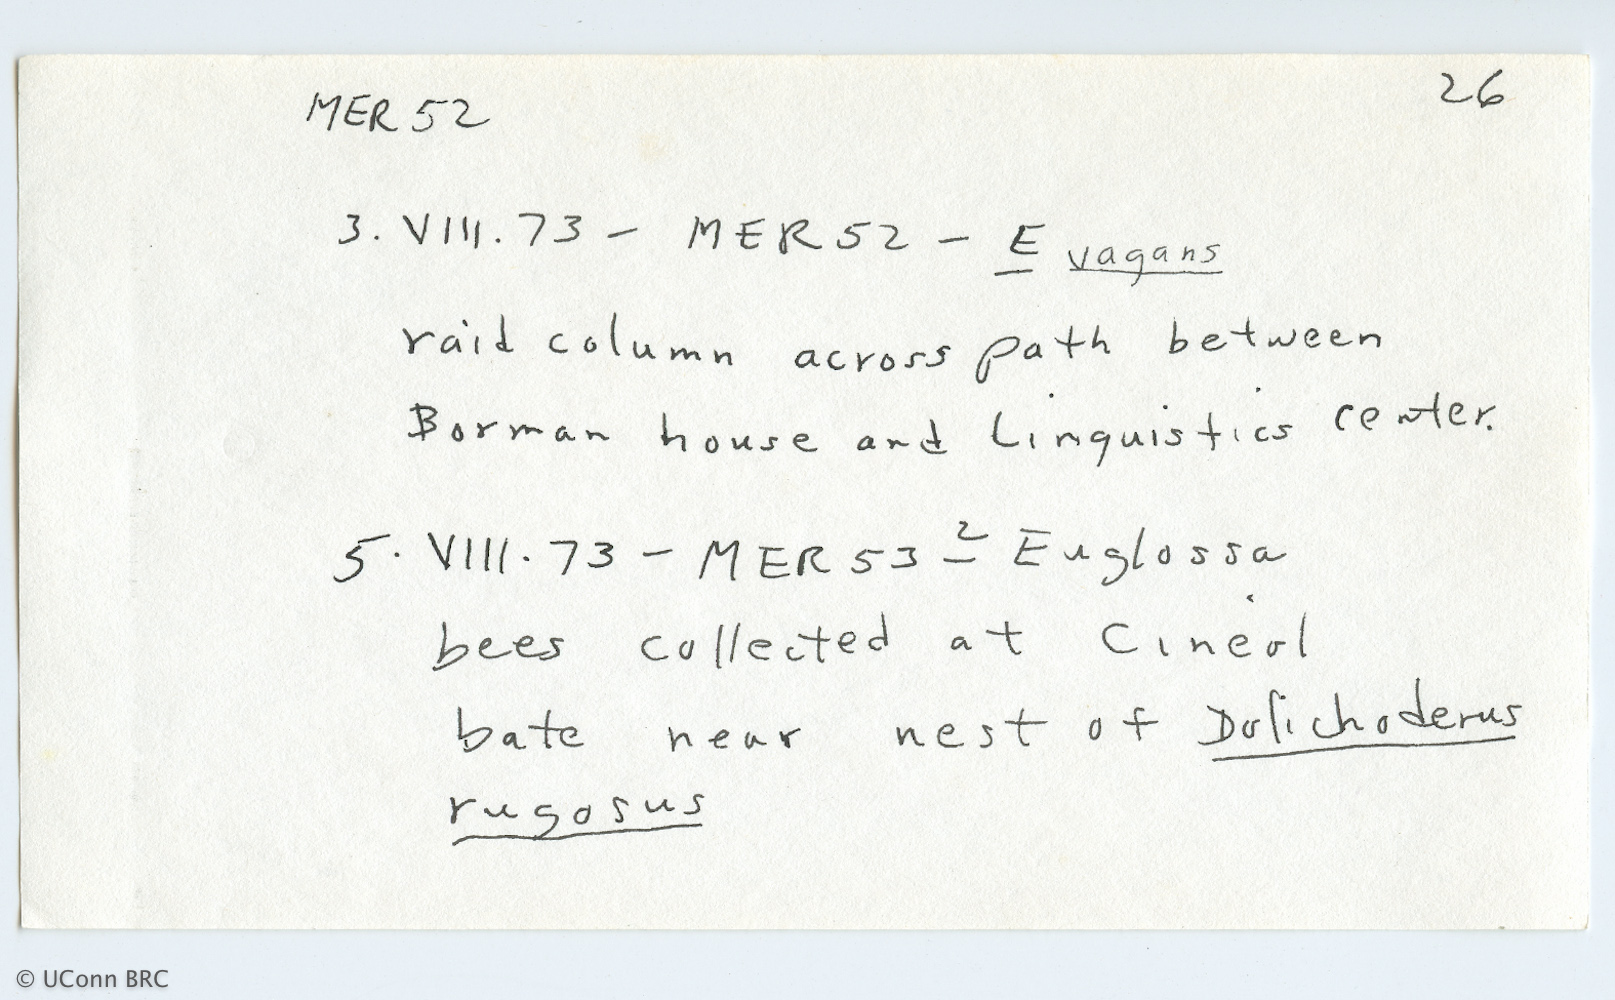 MER 52
26
3. VIII. 73 – MER 52 – E vagans
raid column across path between
Borman house and Linguistics center.
5. VIII. 73 – MER 53 – 2 Euglossa
bees collected at Cineol
bate near nest of Dolichoderus
rugosus
© UConn BRC